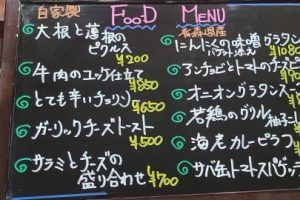 自家製 FOOD MENU
大根と蓮根の
ピクルス
¥200
牛肉のユッケ仕立て
¥850
とても辛いチョリソ
¥650
ガーリックチーズトースト
¥500
サラミとチーズの
盛り合わせ ¥700
青森県産
にんにくの味噌グラタン
バゲット添え ¥1080
アンチョビとトマトのスピ
オニオングラタンスー
若鶏のグリル 柚子
海老カレーピラフ
サバ缶トマトスパゲッ